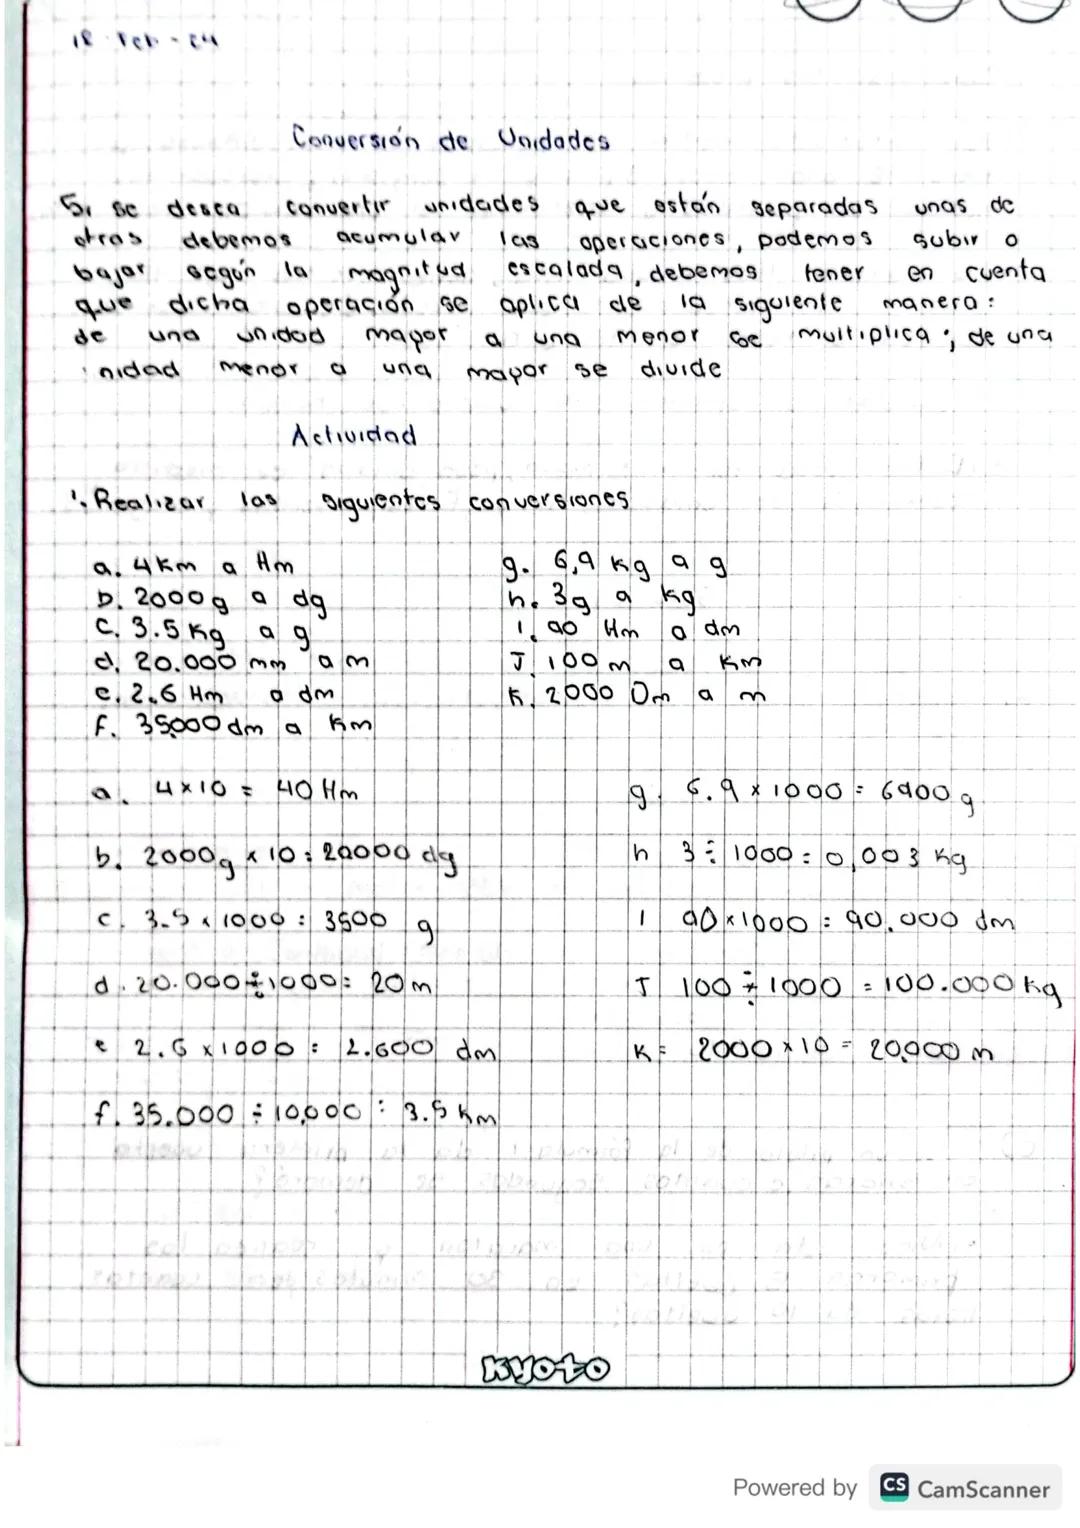 18 Feb - 24
Conversión de Unidades
Si se desea convertir unidades que están separadas unas de
otras debemos acumular las operaciones, podemos subir o
bajar según la magnitud escalada, debemos tener en cuenta
que dicha operación se aplica de la siguiente manera:
de una unidad mayor a una menor se multiplica; de una
nidad menor a una mayor se divide
Actividad
1. Realizar las siguientes conversiones
a. 4 Km a Hm
b. 2000g a dg
c. 3.5 Kg a g
d. 20.000 mm a m
e. 2.6 Hm a dm
f. 35000 dm a Km
g. 6,9 kg a g
h. 3g a kg
i. 90 Hm a dm
J. 100 m a Km
K. 2000 Dm a m
a. 4 x 10 = 40 Hm
b. 2000g x 10 = 20000 dg
c. 3.5 x 1000 = 3500 g
d. 20.000 ÷ 1000 = 20 m
e 2.6 x 1000 = 2.600 dm
f. 35.000 ÷ 10,000 = 3.5 Km
g. 6.9 x 1000 = 6900 g
h 3 ÷ 1000 = 0,003 Kg
i 90 x 1000 = 90.000 dm
J 100 ÷ 1000 = 100.000 Kg
K = 2000 x 10 = 20.000 m
KYOTO
Powered by CS CamScanner